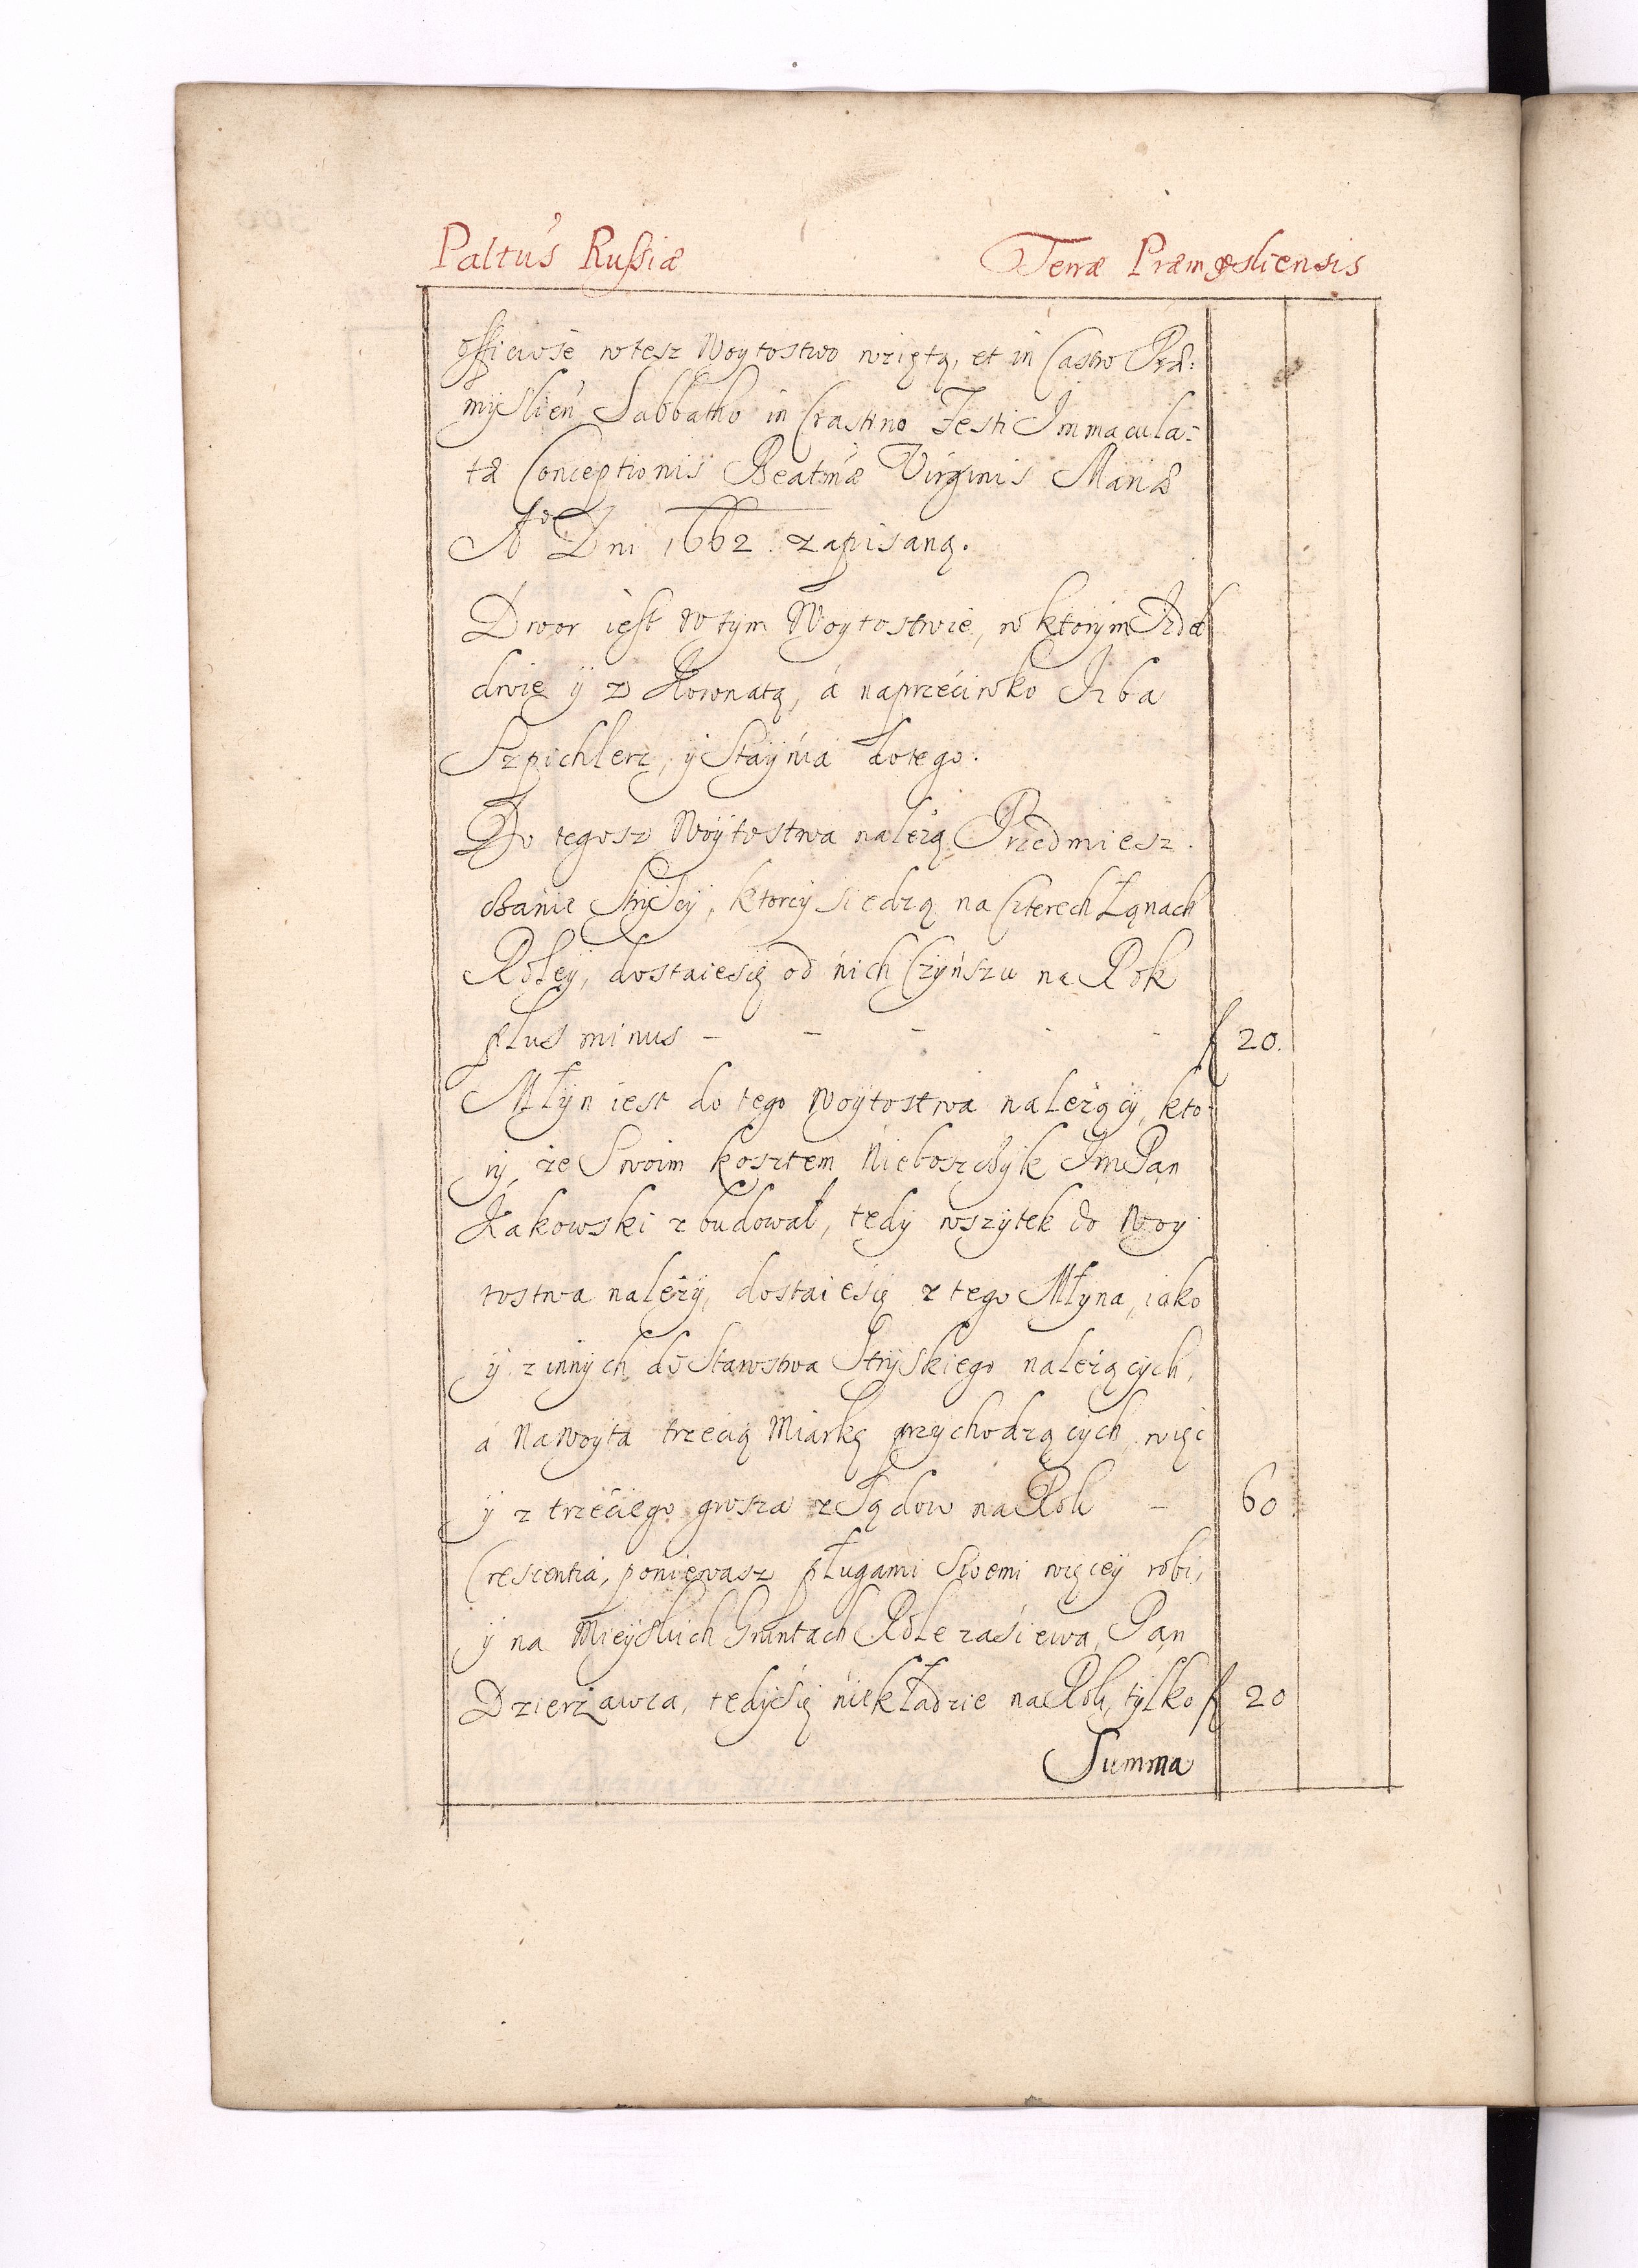 Paltus Russiæ Terræ Præmysliensis
officiose wtesz Woytostwo wziętą, et in Castro Præ-
mÿslien Sabbatho in Crastino Festi Immacula-
tæ Conceptionis Beatmæ Virginis Mariæ
Aº Dni 1662 zapisaną.
Dwor iest w tym Woytostwie, w ktorÿm Izdeb
dwie ÿ z Komnatą, á naprzećiwko Izba
Szpichlerz, ÿ Stáÿnia dotego.
Do tegosz Woÿtostwa należą Przedmiesz-
czanie Strÿscÿ, ktorzÿ siedzą na Czterech Łąnach
Roleÿ, dostaiesię od nich Czÿnszu na Rok
plus minus - - - - - f 20.
Młÿn iest do tego Woÿtostwa należącÿ, kto-
rÿ, że Swoim kosztem Nieboszczÿk ImPan
Żakowski zbudował, tedÿ wszÿtek do Woy-
tostwa należÿ, dostaiesię z tego Młÿna, iako
ÿ z innÿch do Starostwa Strÿskiego należącÿch,
á na Woÿta trzecią Miarką przÿchodzącÿch, więc
ÿ z trzećiego grosza z Sądow na Rok - 60.
Crescentia, poniewasz pługami Swemi więceÿ robi,
ÿ na Mieÿskich Gruntach Role zasiewa, Pan
Dzierżawca, tedÿ się niekładzie na Rok, tÿlko f 20
Summa